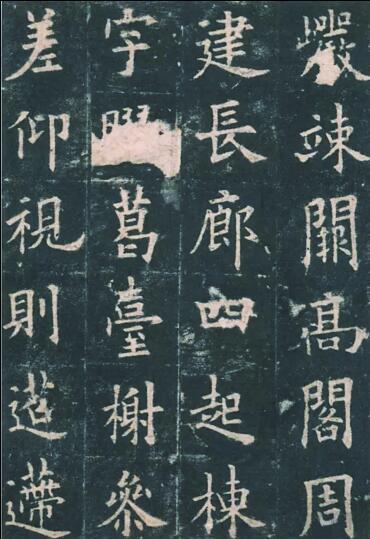 巖竦闕高閣周
建長廊四起棟
宇葛臺榭參
差仰視則迢遰